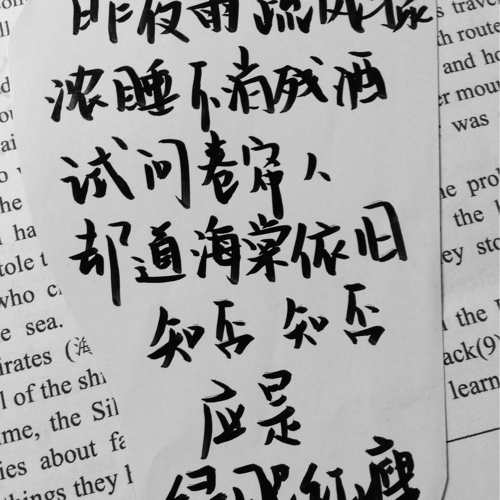 昨夜雨疏风骤
浓睡不消残酒
试问卷帘人
却道海棠依旧
知否 知否
应是
绿肥红瘦
s trave
h route
and ho
er mour
was
he prol
the
ey sto
the
ack(9)
learn
he
ha
tole t
who c
e sea.
irates (海
l of the shi
me, the Sil
ies about fa
things they h